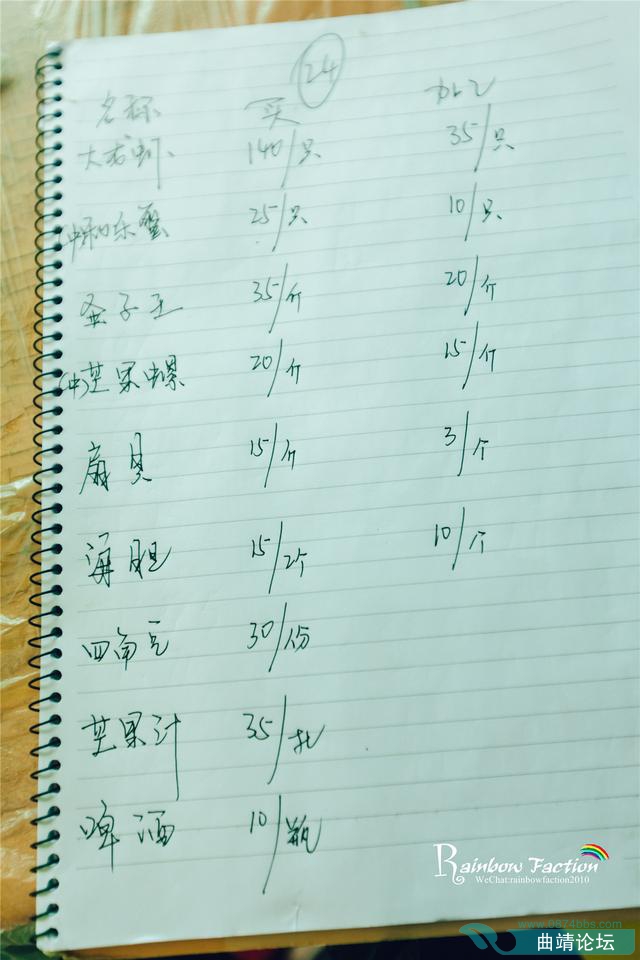 24
名称 买 加工
大龙虾 140/只 35/只
(中)和乐蟹 25/只 10/只
圣子王 35/斤 20/斤
(中)芒果螺 20/斤 15/斤
扇贝 15/斤 3/个
海胆 15/2个 10/个
四角豆 30/份
芒果汁 35/扎
啤酒 10/瓶
Rainbow Faction
WeChat:rainbowfaction2010
www.0874bbs.com
曲靖论坛